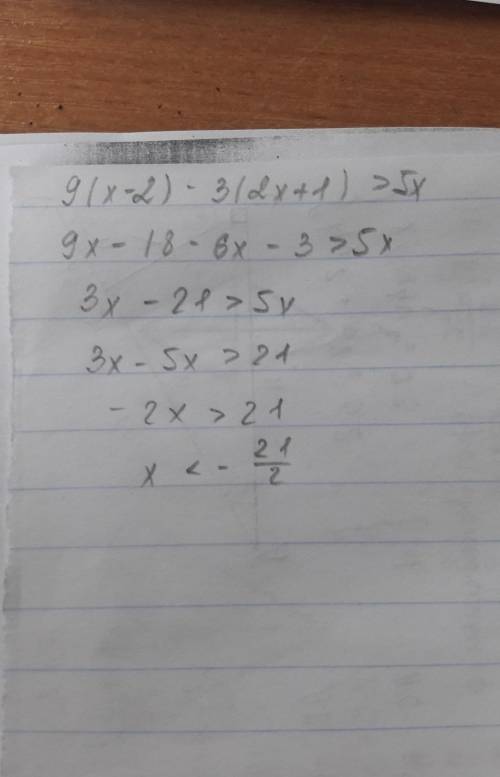 9(x-2) - 3(2x+1) > 5x
9x - 18 - 6x - 3 > 5x
3x - 21 > 5x
3x - 5x > 21
- 2x > 21
x < - 21/2